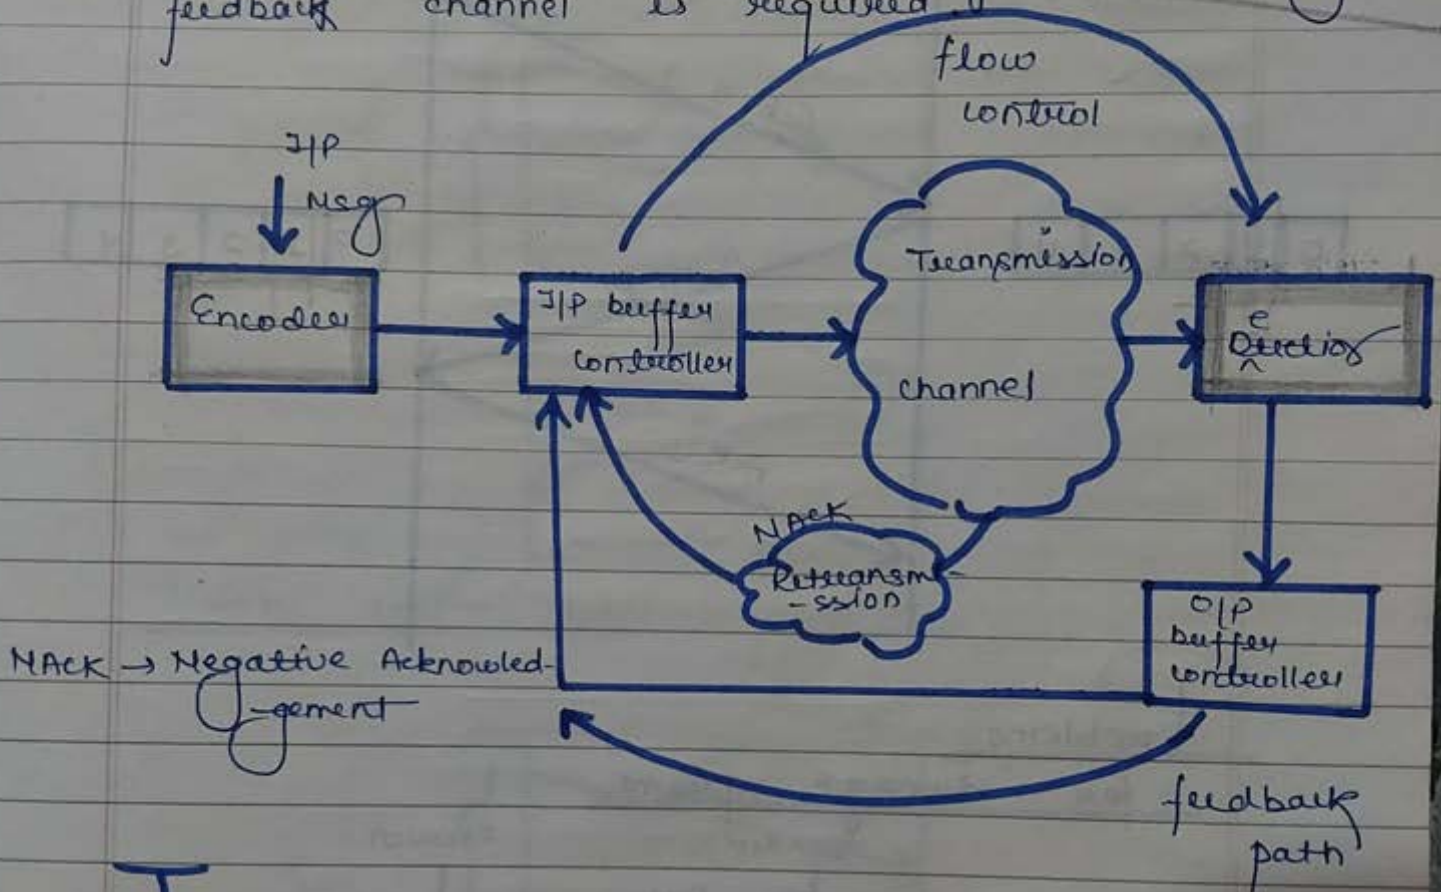 feedback channel is required.
flow
control
I/P
Msg
Encoder
I/P buffer
controller
Transmission
channel
NACK
Retransm-
-ssion
O/P
buffer
controller
NACK → Negative Acknowled-
-gement
feedback
path